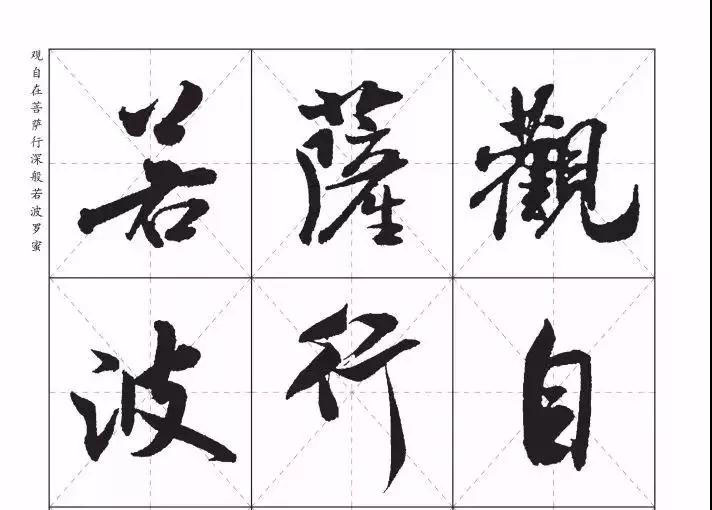 觀自
薩行
若波
观自在菩萨行深般若波罗蜜